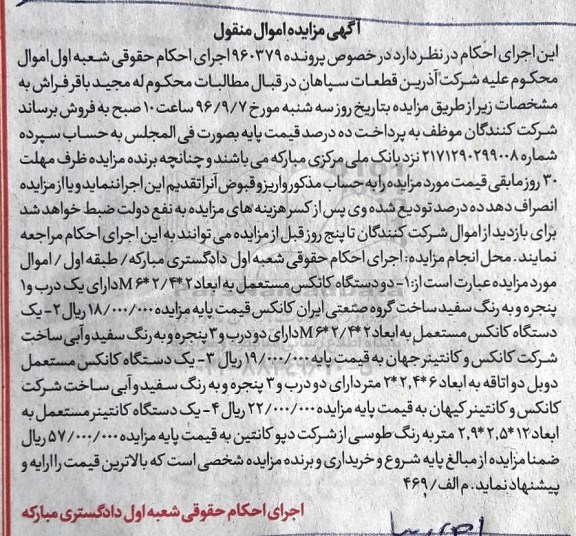 آگهی مزایده اموال منقول
این اجرای احکام در نظر دارد در خصوص پرونده ۹۶۰۳۷۹ اجرای احکام حقوقی شعبه اول اموال
محکوم علیه شرکت آذرین قطعات سپاهان در قبال مطالبات محکوم له مجید باقر فراش به
مشخصات زیر از طریق مزایده بتاریخ روز سه شنبه مورخ ۹۶/۹/۷ ساعت ۱۰ صبح به فروش برساند
شرکت کنندگان موظف به پرداخت ده درصد قیمت پایه بصورت فی المجلس به حساب سپرده
شماره ۲۱۷۱۲۹۰۲۹۹۰۰۸ نزد بانک ملی مرکزی مبارکه می باشند و چنانچه برنده مزایده ظرف مهلت
۳۰ روز مابقی قیمت مورد مزایده را به حساب مذکور واریز و قبوض آنرا تقدیم این اجرا ننماید و یا از مزایده
انصراف دهد ده درصد تودیع شده وی پس از کسر هزینه های مزایده به نفع دولت ضبط خواهد شد
برای بازدید از اموال شرکت کنندگان تا پنج روز قبل از مزایده می توانند به این اجرای احکام مراجعه
نمایند. محل انجام مزایده: اجرای احکام حقوقی شعبه اول دادگستری مبارکه/ طبقه اول / اموال
مورد مزایده عبارت است از: ۱- دو دستگاه کانکس مستعمل به ابعاد ۲*۲/۴*۶M دارای یک درب و ۱
پنجره و به رنگ سفید ساخت گروه صنعتی ایران کانکس قیمت پایه مزایده ۱۸/۰۰۰/۰۰۰ ریال ۲- یک
دستگاه کانکس مستعمل به ابعاد ۲*۲/۴*۶M دارای دو درب و ۳ پنجره و به رنگ سفید و آبی ساخت
شرکت کانکس و کانتینر جهان به قیمت پایه ۱۹/۰۰۰/۰۰۰ ریال ۳- یک دستگاه کانکس مستعمل
دوبل دو اتاقه به ابعاد ۶*۲,۴*۲ متر دارای دو درب و ۳ پنجره و به رنگ سفید و آبی ساخت شرکت
کانکس و کانتینر کیهان به قیمت پایه مزایده ۲۲/۰۰۰/۰۰۰ ریال ۴- یک دستگاه کانتینر مستعمل به
ابعاد ۱۲*۲,۵*۲,۹ متر به رنگ طوسی از شرکت دپو کانتین به قیمت پایه مزایده ۵۷/۰۰۰/۰۰۰ ریال
ضمنا مزایده از مبالغ پایه شروع و خریداری و برنده مزایده شخصی است که بالاترین قیمت را ارایه و
پیشنهاد نماید. م الف/۴۶۹
اجرای احکام حقوقی شعبه اول دادگستری مبارکه